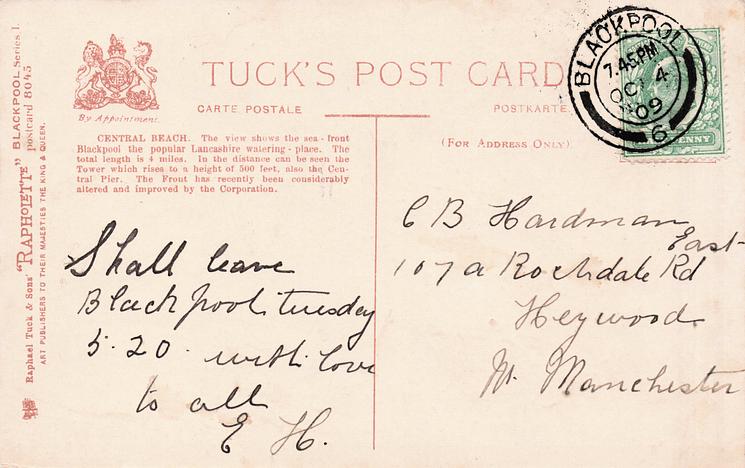 Raphael Tuck & Sons' "RAPHOLETTE" BLACKPOOL Series I. postcard 8045
ART PUBLISHERS TO THEIR MAJESTIES THE KING & QUEEN.
By Appointment.
TUCK'S POST CARD
CARTE POSTALE
POSTKARTE
(FOR ADDRESS ONLY)
CENTRAL BEACH. The view shows the sea-front
Blackpool the popular Lancashire watering-place. The
total length is 4 miles. In the distance can be seen the
Tower which rises to a height of 500 feet, also the Cen-
tral Pier. The Front has recently been considerably
altered and improved by the Corporation.
BLACKPOOL
7.45PM
OCT 4
09
6
PENNY
Shall leave
Blackpool tuesday
5.20. with love
to all
E H.
C B Hardman
East
107a Rochdale Rd
Heywood
Nr. Manchester